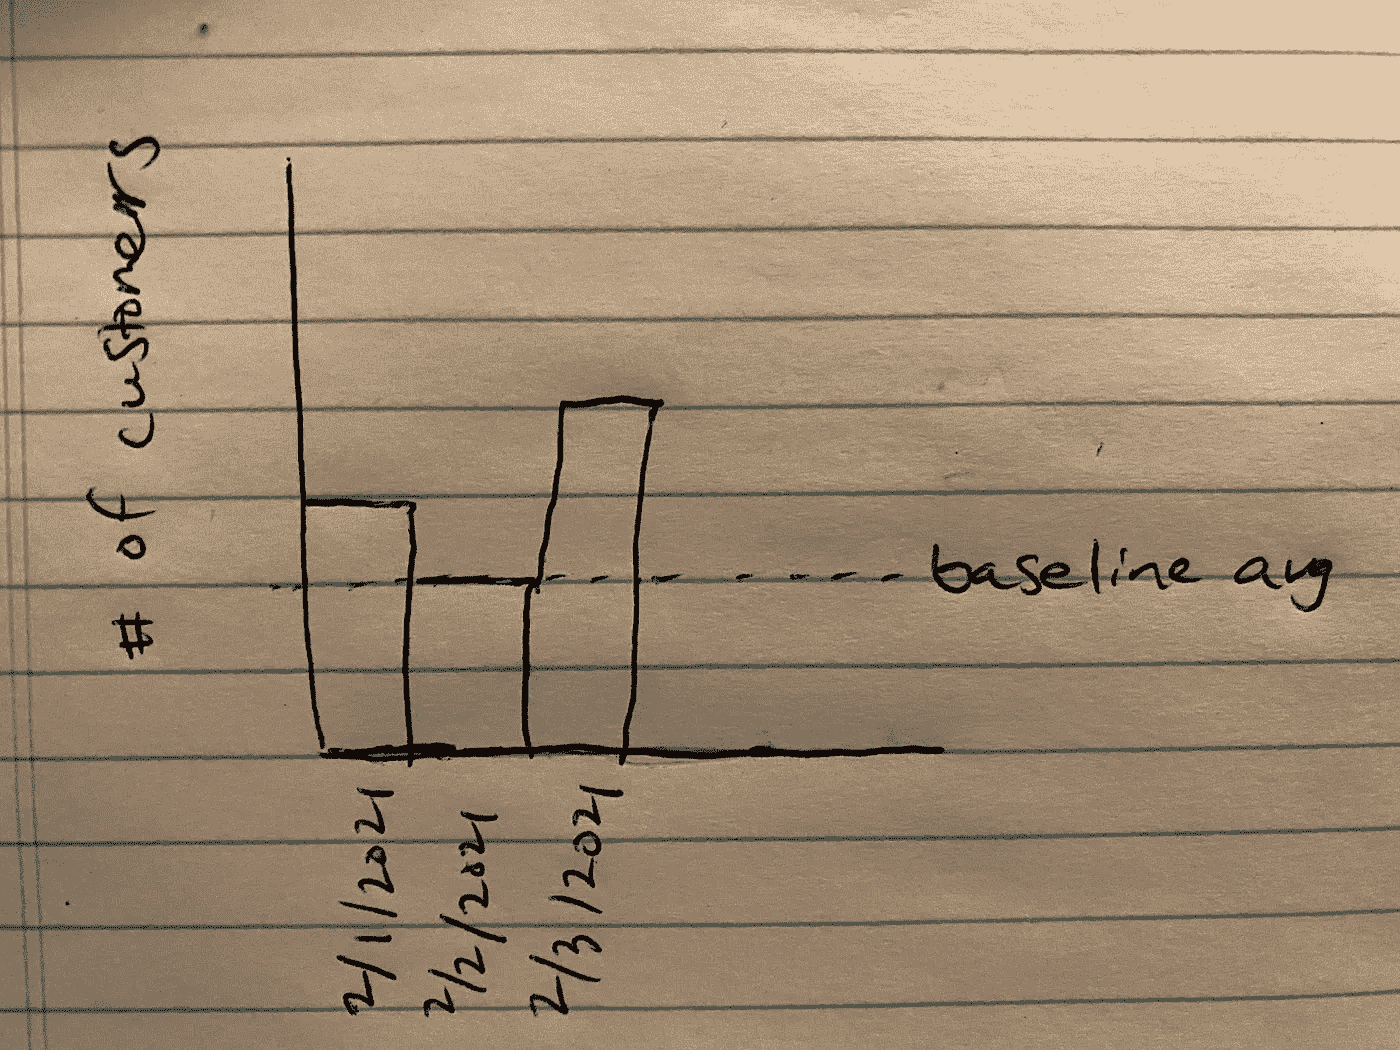 # of customers
baseline avg
2/1/2021
2/2/2021
2/3/2021